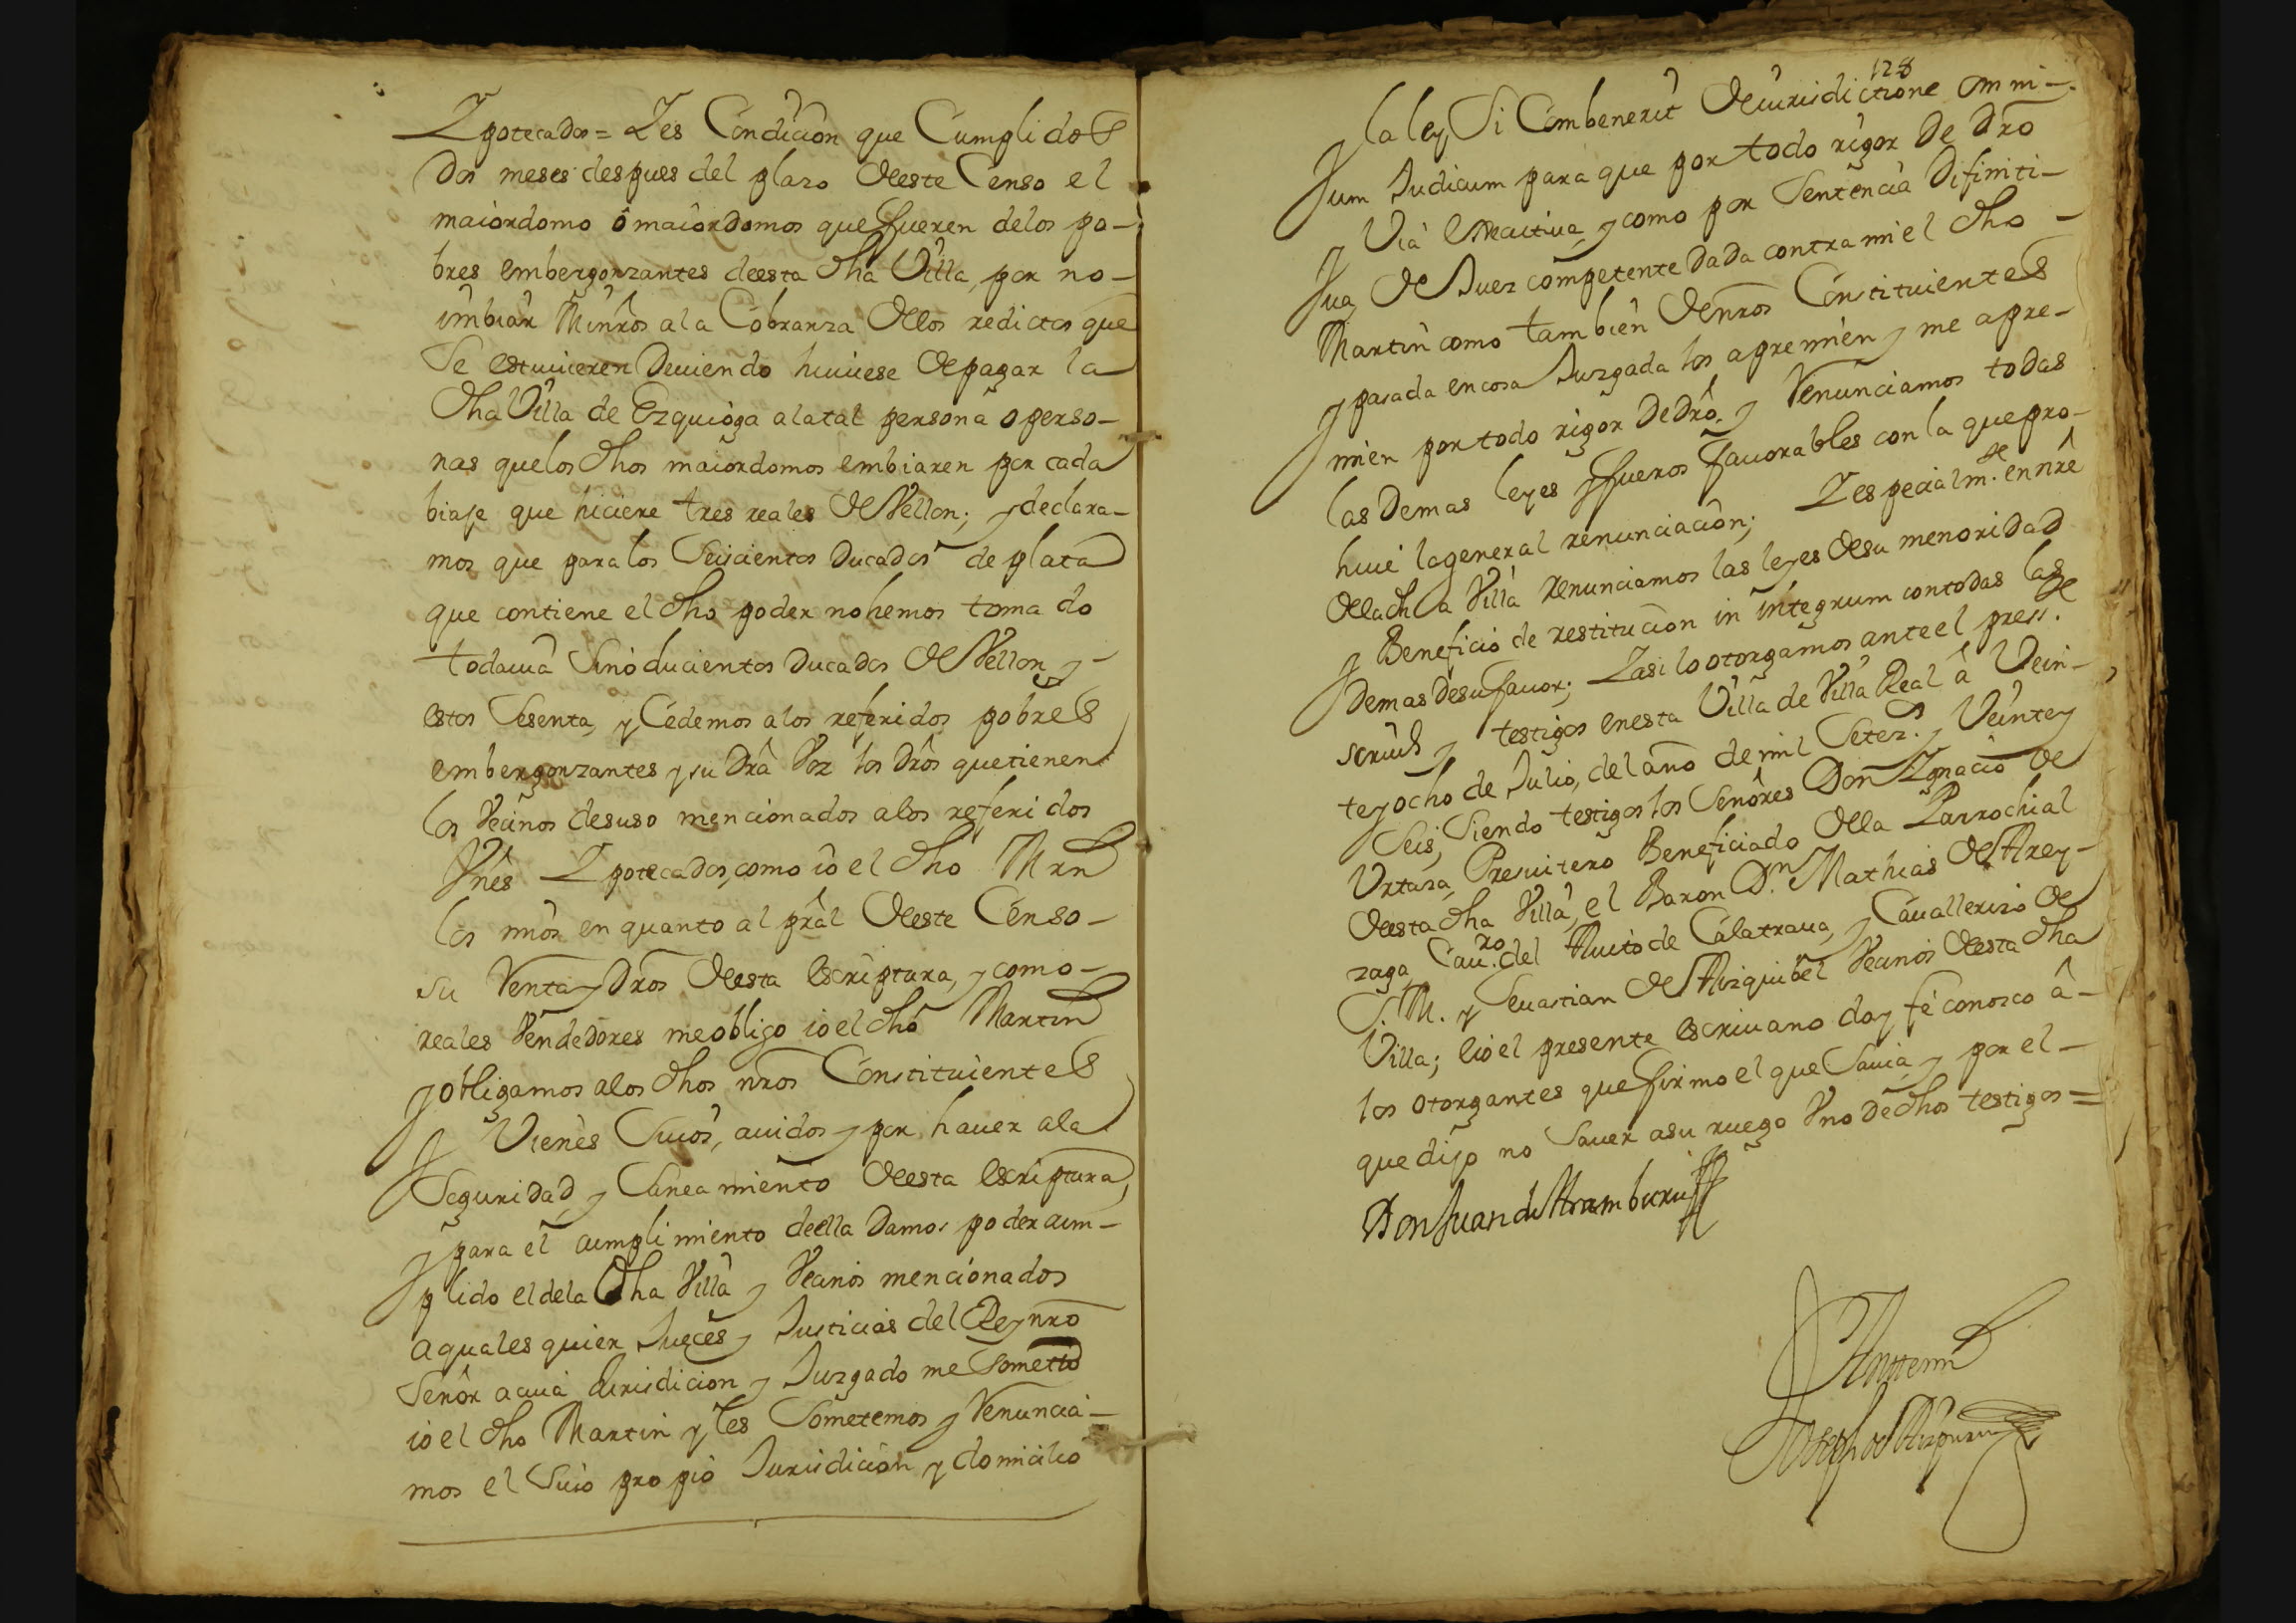 Ypotecados = Y es Condicion que Cumplidos
Dos meses despues del plazo deeste Censo el
maiordomo ô maiordomos que fueren delos po-
bres embergonzantes deesta dha Villa, por no-
imbiar Minros ala Cobranza dellos redictos que
Se estuuieren Deuiendo huuiese de pagar la
dha Villa de Ezquioga alatal persona o perso-
nas quelos dhos maiordomos embiaren por cada
biaje que hiciere tres reales de Vellon; y declara-
mos que para los Seiscientos Ducados de plata
que contiene el dho poder no hemos tomado
todauia Sino ducientos Ducados de Vellon y-
estos Sesenta, y Cedemos alos referidos pobres
embergonzantes y su Dra Voz los Dros quetienen
los Vecinos desuso mencionados alos referidos
Vnes Ypotecados, como io el dho Mrn
los mios en quanto al pral deeste Censo-
su Venta y Dros deesta escriptura, y como-
reales Vendedores me obligo io el dho Martin
y obligamos alos dhos nros Constituientes
y Vienes Suios, auidos y por hauer ala
Seguridad, y Saneamiento deesta escriptura,
y para el cumplimiento deella Damos poder cum-
plido el dela dha Villa y Vecinos mencionados
aquales quier Jueces y Justicias del Rey nro
Señor acuia Jurisdicion y Juzgado me Sometto
io el dho Martin y les Sometemos y Renuncia-
mos el Suio propio Jurisdicion y domicilio
128
la ley Si Combenerit de iurisdictione omni-
um Judicum para que por todo rigor De Dro
y Via executiua, y como por Sentencia Difiniti-
ua, de Juez competente Dada contra mi el dho-
Martin como tambien de nros Constituientes
y pasada en cosa Juzgada los apremien y me apre-
mien por todo rigor De Dro. y Renunciamos todas
las Demas leyes y fueros fauorables con la que pro-
hiue la general renunciacion; Y especialm.te en nre
de la dha Villa renunciamos las leyes de su menoridad
y Beneficio de restitucion in integrum con todas las
Demas Desu fauor; Y asi lo otorgamos ante el press.te
scriu y testigos en esta Villa de Villa Real â Vein-
te y ocho de Julio, del año de mil Setez.s y Veinte y
Seis, Siendo testigos los Señores Don Ygnacio de
Vrtaza, Presuitero Beneficiado della Parrochial
deesta dha Villa, el Baron D.n Mathias de Arey-
zaga, Cau.ro del Auito de Calatraua, y Cauallerizo de
S. M. y Seuastian de Aizquibel Vecinos deesta dha
Villa; e io el presente escriuano doy fé conosco â-
los otorgantes que firmo el que Sauia, y por el-
que dijo no Sauer asu ruego Vno de dhos testigos =
Don Juan de Aramburu
Antemi
Joseph de Aizpuru